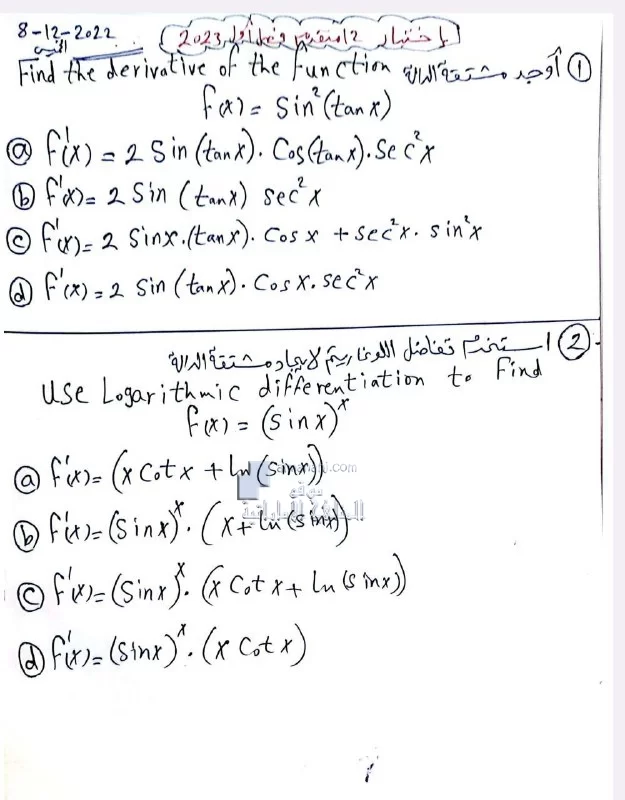 8-12-2022
إختبار 12 متقدم فصل أول 2023
Find the derivative of the function أوجد مشتقة الدالة ①
f(x) = Sin²(tanx)
ⓐ f'(x) = 2 Sin(tanx). Cos(tanx). Sec²x
ⓑ f'(x) = 2 Sin (tanx) sec²x
ⓒ f'(x) = 2 Sinx.(tanx). Cos x + sec²x. sin²x
ⓓ f'(x) = 2 Sin (tanx). Cos x. sec²x
② استخدم تفاضل اللوغاريتم لايجاد مشتقة الدالة
Use Logarithmic differentiation to Find
f(x) = (sinx)ˣ
ⓐ f'(x) = (x Cotx + ln(sinx))
ⓑ f'(x) = (Sinx)ˣ. (x + ln(sinx))
ⓒ f'(x) = (Sinx)ˣ. (x Cot x + ln(sinx))
ⓓ f'(x) = (Sinx)ˣ. (x Cot x)